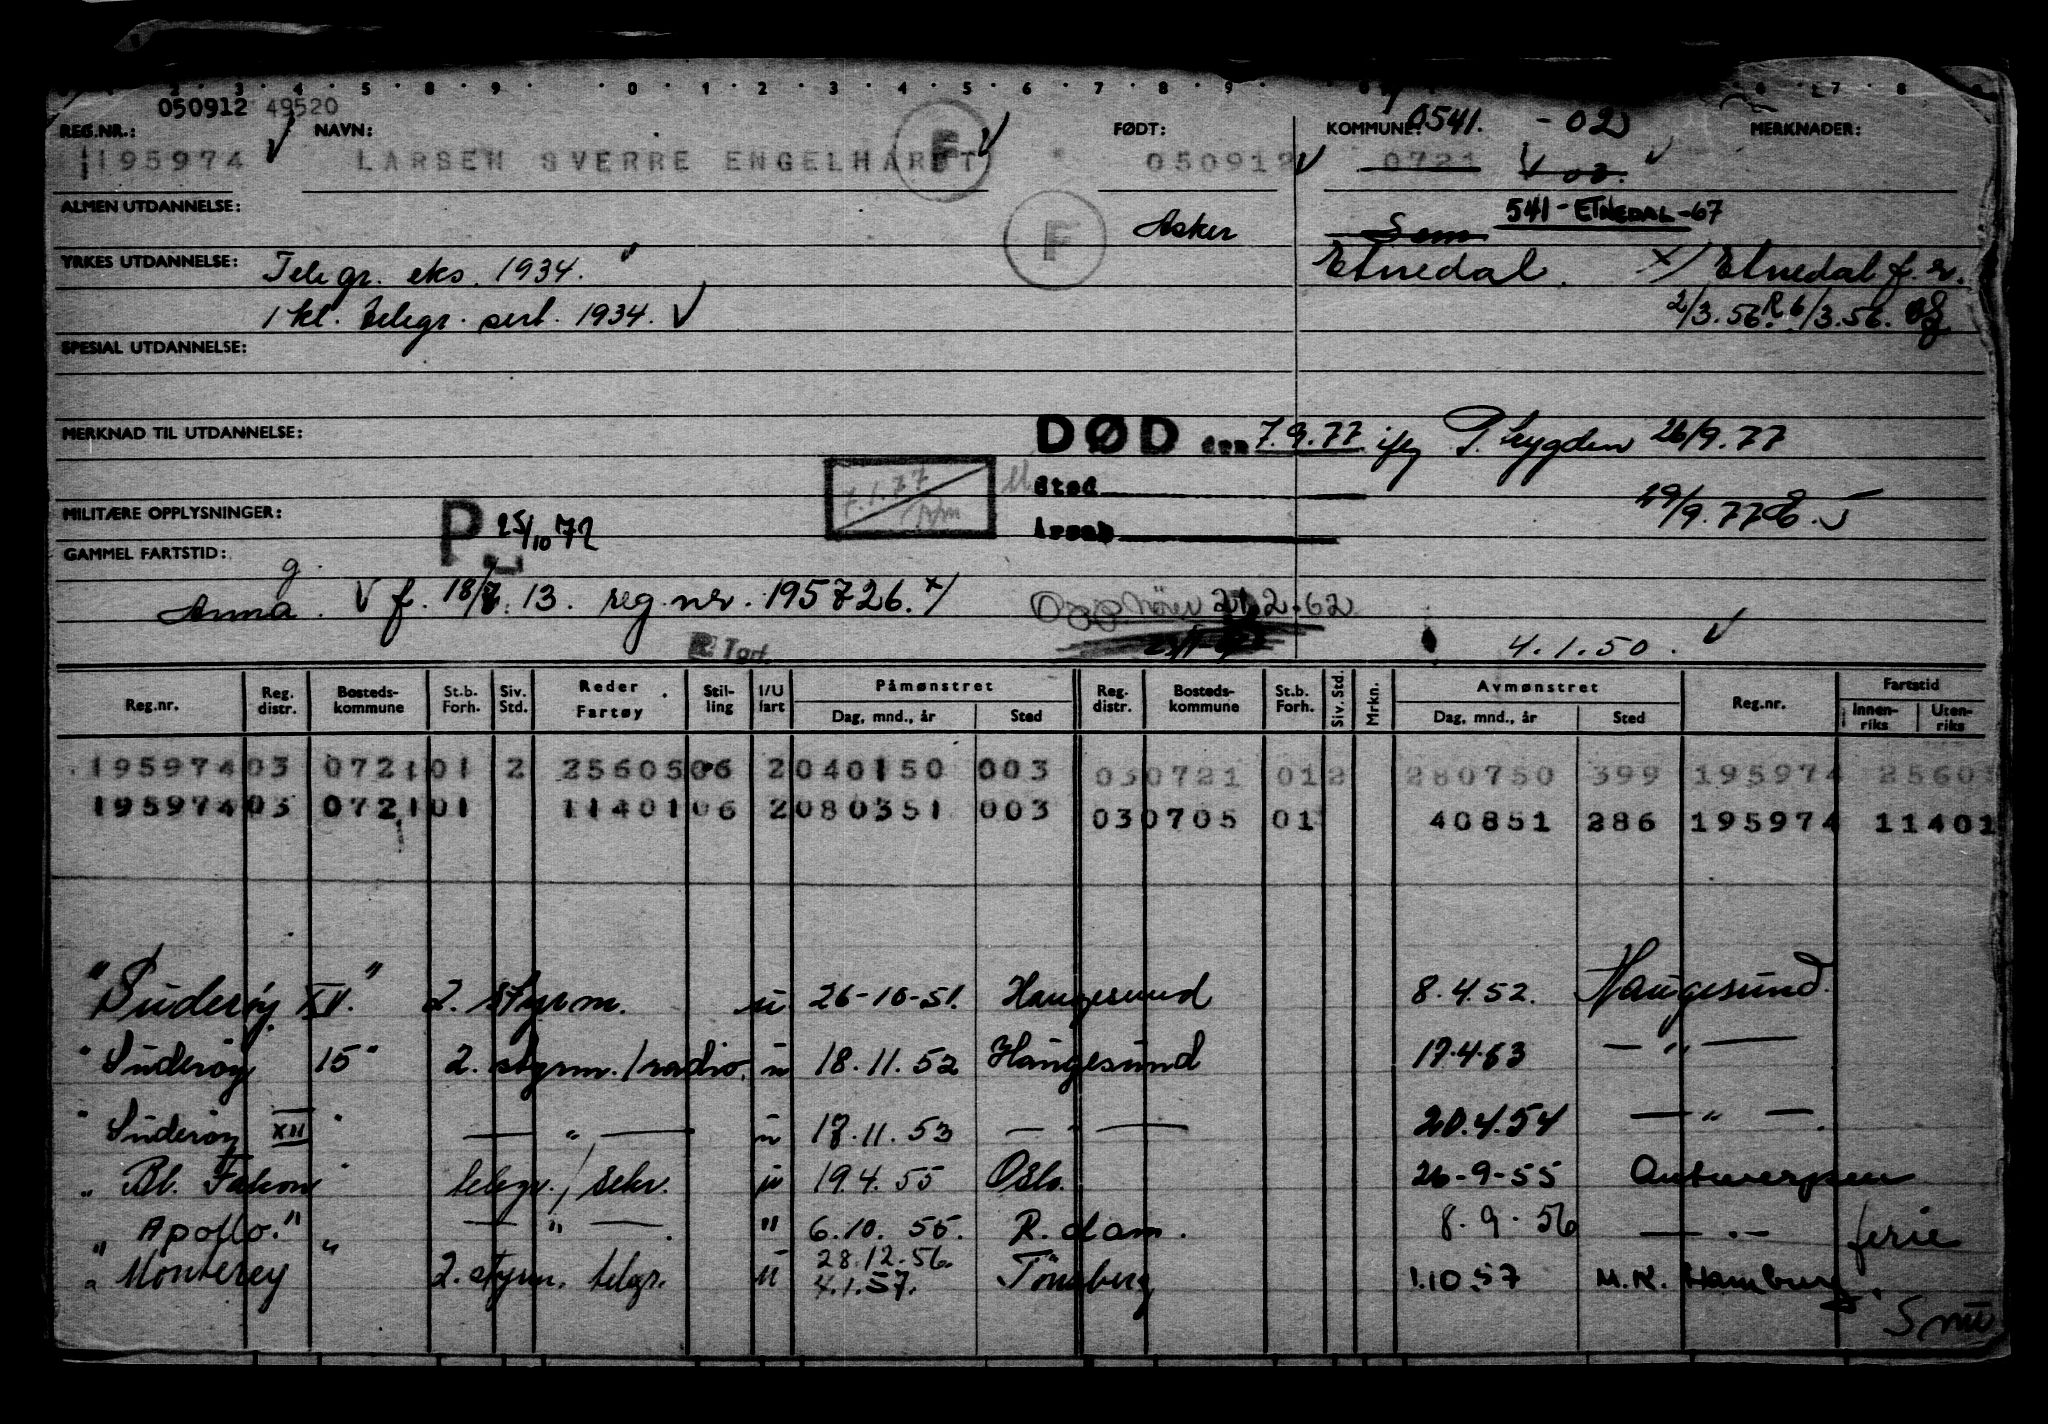 050912 49520
REG.NR.: NAVN: FØDT: KOMMUNE: 0541. - 02 MERKNADER:
195974 LARSEN SVERRE ENGELHARDT F 050912 0721 02.
ALMEN UTDANNELSE: F Asker Sem 541-ETNEDAL-67
YRKES UTDANNELSE: Telegr. eks. 1934. " Etnedal. x/ Etnedal f. r.
1 kl. telegr. sert. 1934. 2/3.56. R 6/3.56.
SPESIAL UTDANNELSE:
MERKNAD TIL UTDANNELSE: DØD den 7.9.77 ifg P. trygden 26/9.77
7.1.77 Sted 29/9.77
MILITÆRE OPPLYSNINGER: P 25/10 72 Årsak
GAMMEL FARTSTID: g.
Anna. f. 18/7. 13. reg. nr. 195726. x/ 2.62
4.1.50.
Reg.nr. Reg. distr. Bosteds-kommune St.b. Forh. Siv. Std. Reder Fartøy Stil-ling I/U fart Påmønstret Dag, mnd., år Sted Reg. distr. Bosteds-kommune St.b. Forh. Siv. Std. Mrkn. Avmønstret Dag, mnd., år Sted Reg.nr. Fartstid Innen-riks Uten-riks
195974 03 0721 01 2 25605 06 2 040150 003 03 0721 01 2 280750 399 195974 25605
195974 03 0721 01 11401 06 2 080351 003 03 0705 01 40851 286 195974 11401
"Suderøy XV." 2. styrm. u 26-10-51. Haugesund 8.4.52. Haugesund.
"Suderøy 15" 2. styrm./radio. u 18.11.52 Haugesund 17.4.53 — " —
"Suderøy XII" — " — u 17.11.53 — " — 20.4.54 — " —
" Bl. Falcon " telegr./sekr. u 19.4.55 Oslo. 26-9-55 Antwerpen
" Apollo." — " — " 6.10.55. R.dam. 8.9.56 — " — ferie
28.12.56.
" Monterey " 2. styrm. telgr. u 4.1.57. Tønsberg 1.10.57 M.K. Hamburg